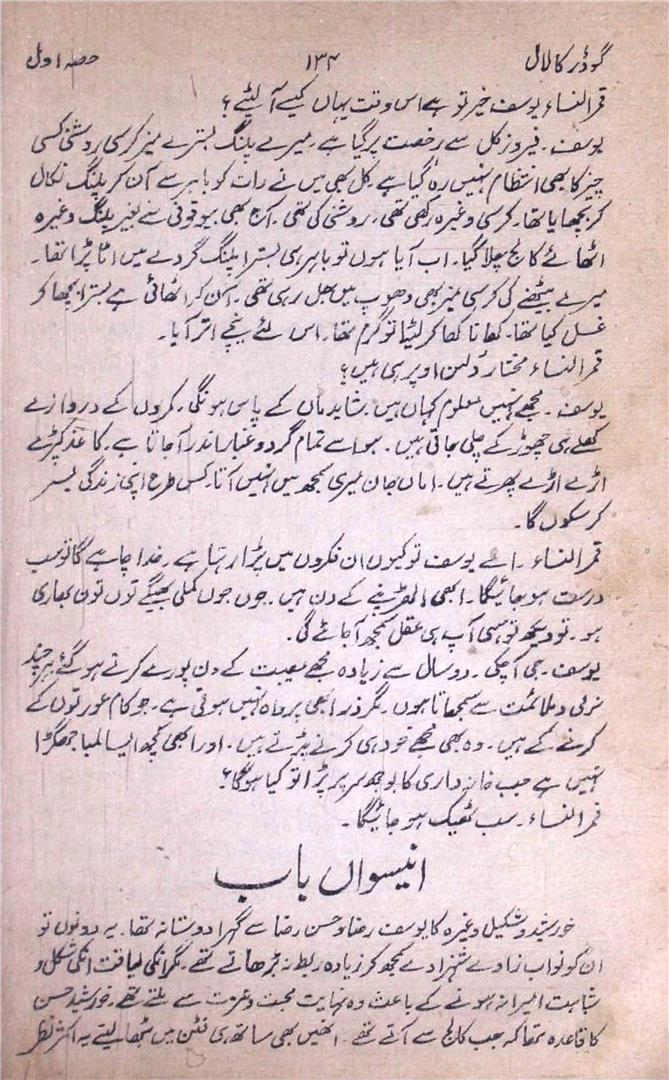 گودڑ کا لال ۱۳۴ حصہ اول
قمر النساء یوسف خیر تو ہے اس وقت یہاں کیسے آ لیٹے؟
یوسف ۔ فیروز کل سے رخصت پر گیا ہے ۔ میرے پلنگ بسترے میز کرسی روشنی کسی
چیز کا بھی انتظام نہیں رہ گیا ہے کل بھی میں نے رات کو باہر سے آن کر پلنگ نکال
کر بچھایا تھا ۔ کرسی وغیرہ رکھی تھی ۔ روشنی کی تھی ۔ آج بھی بیوقوفی سے بغیر پلنگ وغیرہ
اٹھائے کالج چلا گیا ۔ اب آیا ہوں تو باہر ہی بسترا پلنگ گردے میں اٹا پڑا تھا ۔
میرے بیٹھنے کی کرسی میز بھی دھوپ میں جل رہی تھی ۔ آن کر اٹھائی ہے بسترا بچھا کر
غسل کیا تھا ۔ کھانا کھا کر لیٹا تو گرم تھا ۔ اس لئے نیچے اتر آیا ۔
قمر النساء مختار دلہن اوپر ہی ہیں؟
یوسف ۔ مجھے نہیں معلوم کہاں ہیں ۔ شاید ماں کے پاس ہونگی ۔ کمروں کے دروازے
کھلے ہی چھوڑ کے چلی جاتی ہیں ۔ ہوا سے تمام گرد و غبار اندر آ جاتا ہے ۔ کاغذ کپڑے
اڑے اڑے پھرتے ہیں ۔ اماں جان میری سمجھ میں نہیں آتا کس طرح اپنی زندگی بسر
کر سکوں گا ۔
قمر النساء ۔ اے یوسف تو کیوں ان فکروں میں پڑا رہتا ہے ۔ خدا چاہے گا تو سب
درست ہو جائیگا ۔ ابھی الھڑپنے کے دن ہیں ۔ جوں جوں کملی بھیگے توں توں بھاری
ہو ۔ تو دیکھ تو سہی آپ ہی عقل سمجھ آ جائے گی ۔
یوسف ۔ جی آ چکی ۔ دو سال سے زیادہ مجھے مصیبت کے دن پورے کرتے ہو گئے ہر چند
نرمی و ملائمت سے سمجھاتا ہوں ۔ مگر ذرا بھی پرواہ نہیں ہوتی ہے ۔ جو کام عورتوں کے
کرنے کے ہیں ۔ وہ بھی مجھے خود ہی کرنے پڑتے ہیں ۔ اور ابھی کچھ ایسا لمبا جھگڑا
نہیں ہے جب خانہ داری کا بوجھ سر پر پڑا تو کیا ہوگا؟
قمر النساء ۔ سب ٹھیک ہو جائیگا ۔
انیسواں باب
خورشید و شکیل وغیرہ کا یوسف رضا و حسن رضا سے گہرا دوستانہ تھا ۔ یہ دونوں تو
ان کو نواب زادے شہزادے سمجھ کر زیادہ ربط نہ بڑھاتے تھے ۔ مگر انکی لیاقت انکی شکل و
شباہت امیرانہ ہونے کے باعث وہ نہایت محبت و عزت سے ملتے تھے ۔ خورشید حسن
کا قاعدہ تھا کہ جب کالج سے آتے تھے ۔ انھیں بھی ساتھ ہی فٹن میں بٹھا لیتے یہ اکثر